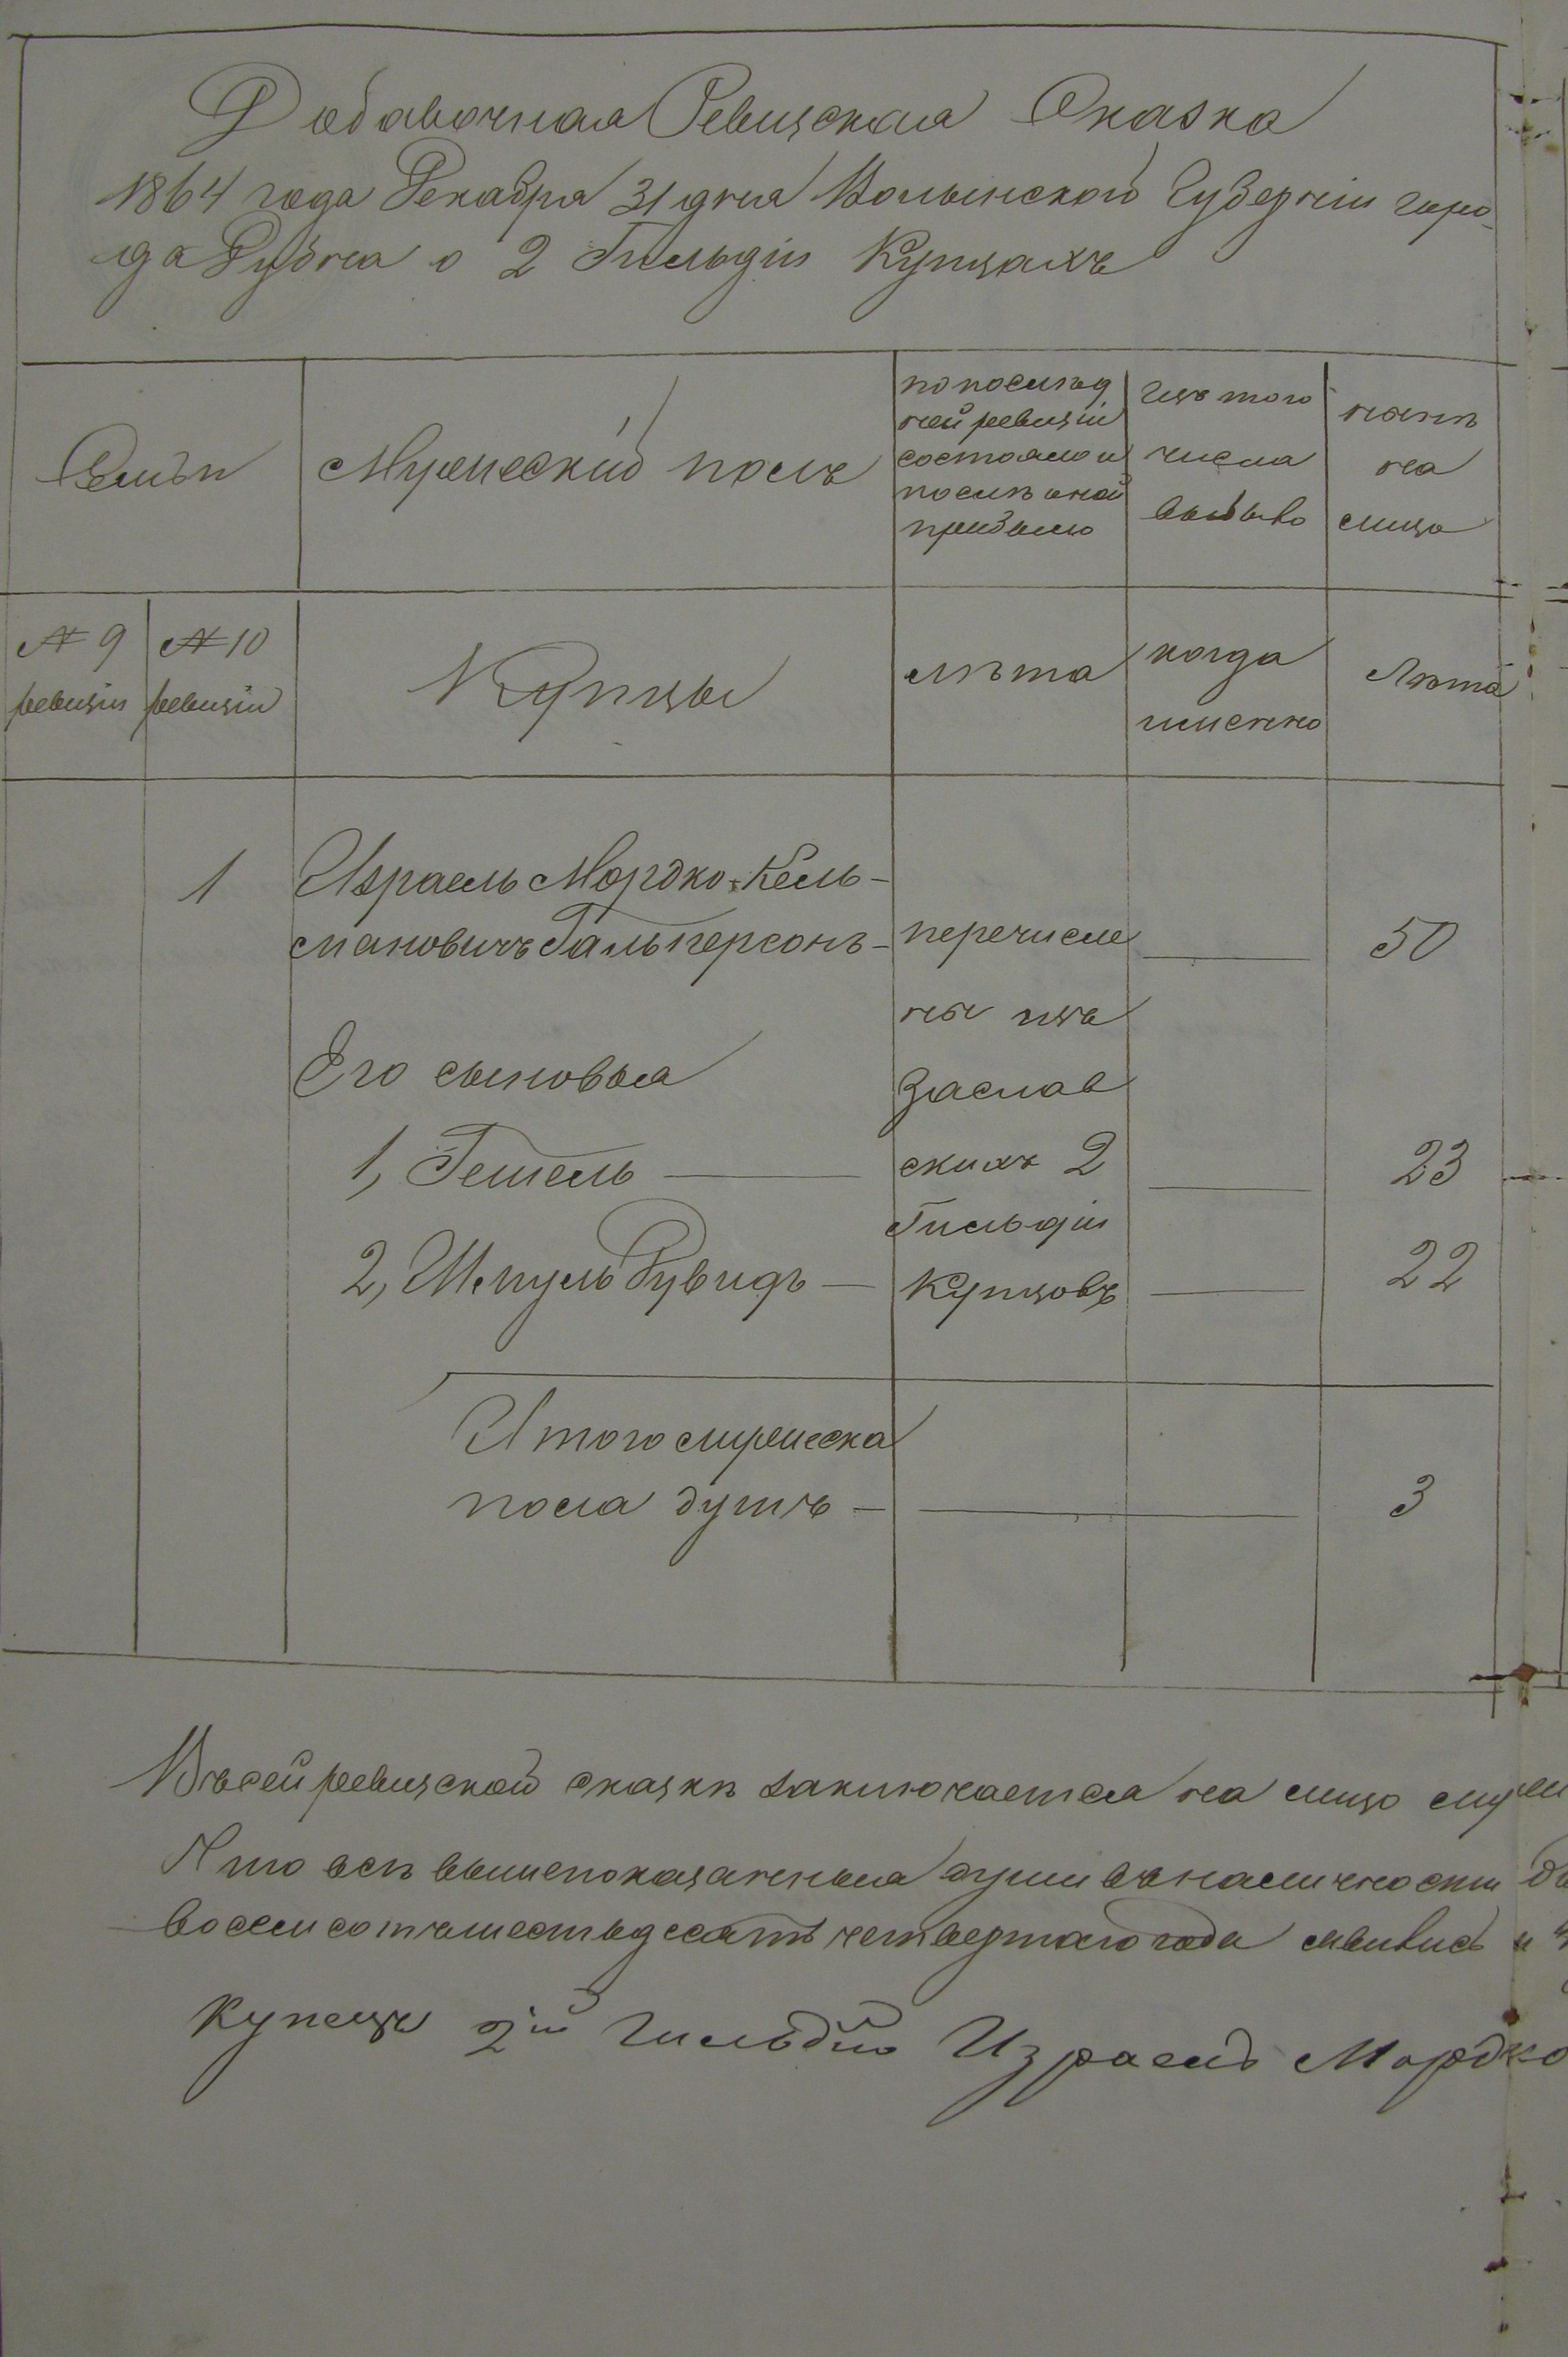 Добавочная Ревизская Сказка
1864 года Декабря 31 дня Волынской Губерніи горо-
да Дубна о 2 Гильдіи Купцахъ
Семьи
Мужескій полъ
по послѣд
ней ревизіи
состояло и
послѣ оной
прибыло
Изъ того
числа
выбыло
нынѣ
на
лицо
№ 9
ревизіи
№ 10
ревизіи
Купцы
лѣта
когда
именно
Лѣта
1 Израель Мордко-Кель-
мановичъ Гальперсонъ- перечисле 50
ны изъ
Его сыновья
Заслав
1, Гешель скихъ 2 23
Гильдіи
2, Шмуль Дувидъ Купцовъ 22
Итого мужеска
пола душъ - 3
Въ сей ревизской сказкѣ заключается на лицо муже
Что всѣ вышепоказанныя души въ наличности
восемсотъ шестьдесятъ четвертаго года явились и
Купецъ 2й Гильдіи Израель Мордко